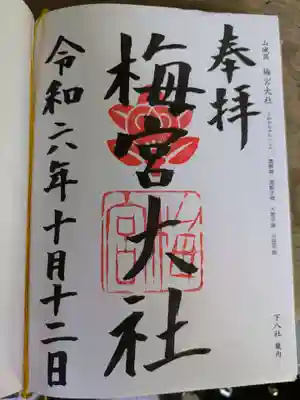 奉拝
山城国 梅宮大社
梅宮大社
梅宮
令和六年十月十二日